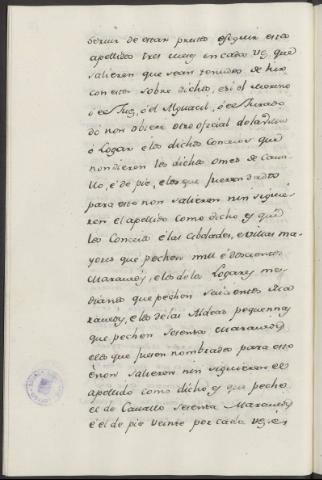 servir de estar presto e seguir estos
apellidos tres meses en cada vez que
salieren que sean tenudos de hir
con estos sobre dichos, e si el merino
o el Juez, o el Alguacil, o el Jurado
do non obiere otro oficial de la Villa
o Logar e los dichos Concejos que
non dieren los dichos omes de Cavallo
llo, e de pie, e los que fueren dados
para esto non salieren nin siguieren
ren el apellido como dicho es que
los Concejos e las cibdades, e villas mayores
yores que pechen mill e doscientos
maravedis, e los de los Logares medianos
dianos que pechen seiscientos Maravedis
ravedis, e los de las Aldeas pequennas
que pechen sesenta maravedis
e los que fueren nombrados para esto
e non salieren nin siguieren el
apellido como dicho es que peche
el de Cavallo sesenta Maravedis
e el de pie veinte por cada vez, e si